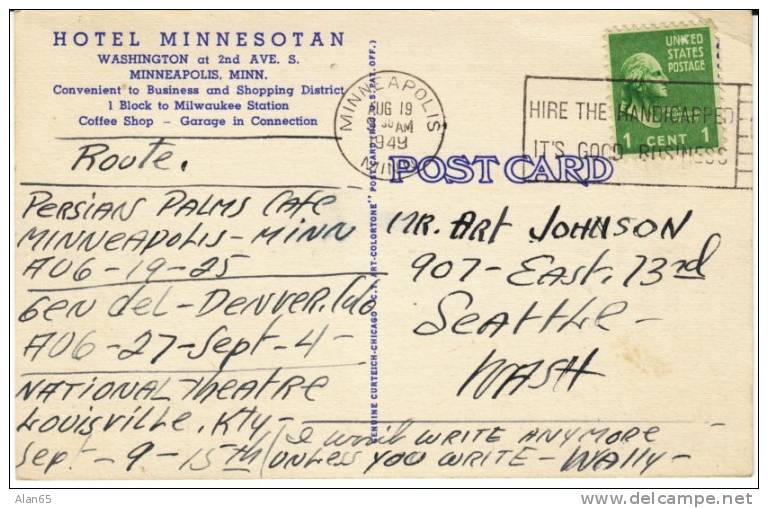 HOTEL MINNESOTAN
WASHINGTON at 2nd AVE. S.
MINNEAPOLIS, MINN.
Convenient to Business and Shopping District
1 Block to Milwaukee Station
Coffee Shop - Garage in Connection
MINNEAPOLIS
AUG 19
30 AM
1949
MINN.
HIRE THE HANDICAPPED
IT'S GOOD BUSINESS
UNITED
STATES
POSTAGE
1 CENT 1
POST CARD
Route.
PERSIAN PALMS CAFE
MINNEAPOLIS - MINN
AUG - 19 - 25
Gen del - DENVER, Colo
AUG - 27 - Sept - 4 -
NATIONAL THEATRE
LOUISVILLE, Kty -
Sept - 9 - 15th
MR. ART JOHNSON
907 - EAST. 73rd
SEATTLE -
WASH
(I won't WRITE ANYMORE
UNLESS YOU WRITE - WALLY -
GENUINE CURTEICH-CHICAGO "C.T. ART-COLORTONE" POST CARD (REG. U.S. PAT. OFF.)
Alan65
www.delcampe.net